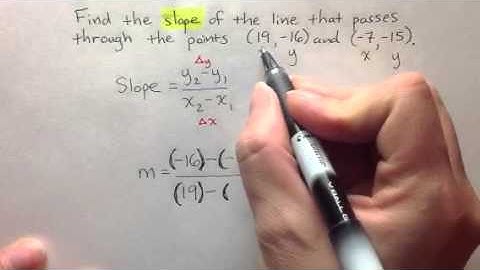 Find the slope of the line that passes
through the points (19, -16) and (-7, -15).
y x y
Δy
Slope = y₂-y₁
x₂-x₁
Δx
m = (-16)-(-
(19)-(